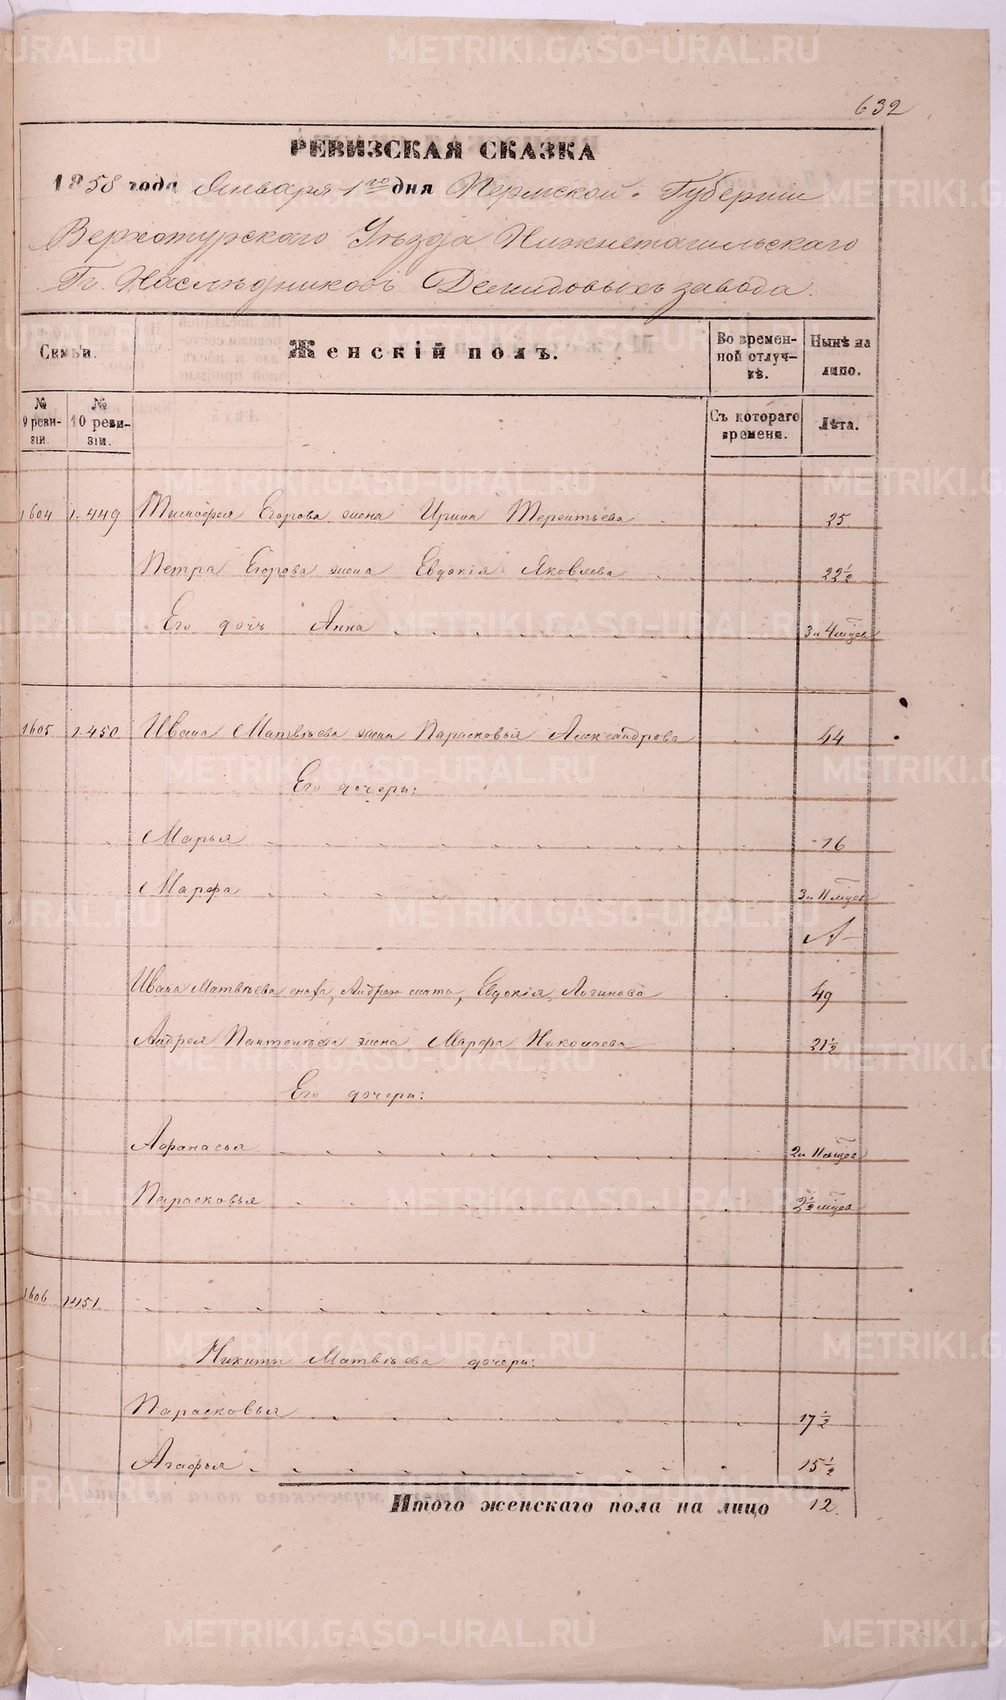 632
РЕВИЗСКАЯ СКАЗКА
1858 года Января 1го дня Пермской Губерніи
Верхотурскаго Уѣзда Нижнетагильскаго
Гг. Наслѣдниковъ Демидовыхъ завода.
Семьи. Женскій полъ. Во времен- Нынѣ на
ной отлуч- лицо.
кѣ.
№ № Съ котораго Лѣта.
9 реви- 10 реви- времени.
зіи. зіи.
1604 1.449 Тимофея Егорова жена Ирина Терентьева 25
Петра Егорова жена Евдокія Яковлева 22 1/2
Его дочь Анна 3 и 4 мѣсяц
1605 1.450. Ивана Матвѣева жена Парасковья Александрова 44
Его дочери:
Марья 16
Марфа 3 и 11 мѣсяц
Ивана Матвѣева сноха, Андрея мать, Евдокія Логинова 49
Андрея Пантелѣева жена Марфа Николаева 21 1/2
Его дочери:
Афанасья 2 и 11 мѣсяц
Парасковья 2 1/2 мѣсяц
1606 1451.
Никиты Матвѣева дочери:
Парасковья 17 1/2
Агафья 15 1/2
Итого женскаго пола на лицо 12.
METRIKI.GASO-URAL.RU